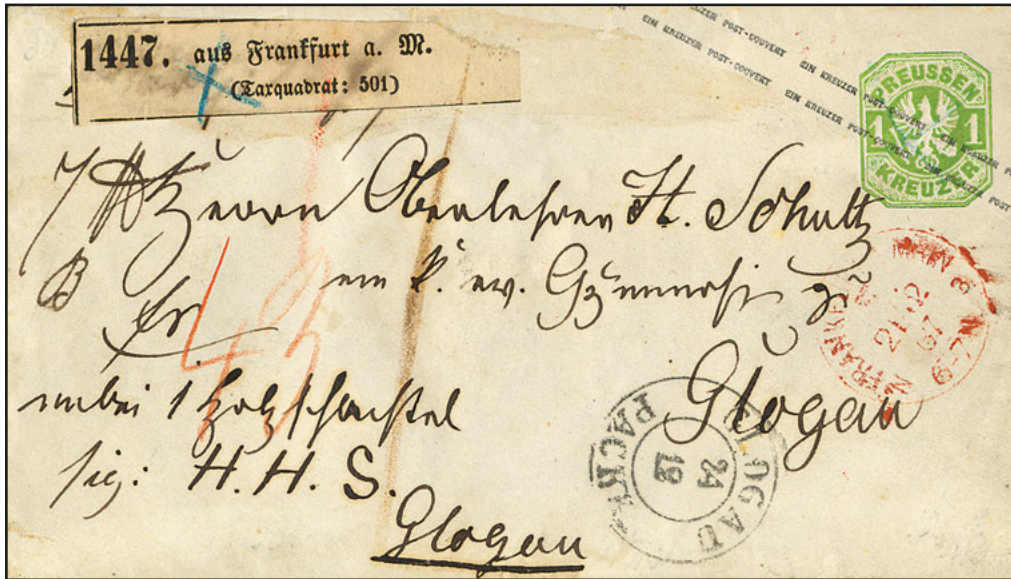 1447. aus Frankfurt a. M.
(Taxquadrat: 501)
EIN KREUZER POST-COUVERT EIN KREUZER POST-COUVERT EIN KREUZER POST-COUVERT
PREUSSEN
1 1
KREUZER
Herrn Oberlehrer H. Schultz
am k. ev. Gymnasi zu
Glogau
fr.
anbei 1 Holzschachtel
sig: H. H. S.
Glogau
FRANKF
21 12
67
6-7N
GLOGAU
24
12
PACK